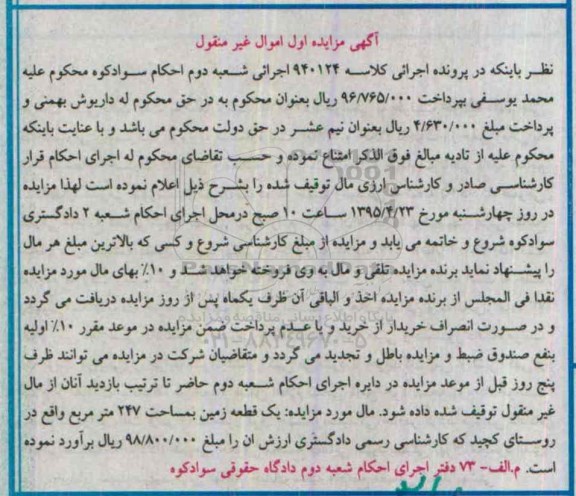 آگهی مزایده اول اموال غیر منقول
نظر باینکه در پرونده اجرائی کلاسه ۹۴۰۱۲۴ اجرائی شعبه دوم احکام سوادکوه محکوم علیه
محمد یوسفی بپرداخت ۹۶/۷۶۵/۰۰۰ ریال بعنوان محکوم به در حق محکوم له داریوش بهمنی و
پرداخت مبلغ ۴/۶۳۰/۰۰۰ ریال بعنوان نیم عشر در حق دولت محکوم می باشد و با عنایت باینکه
محکوم علیه از تادیه مبالغ فوق الذکر امتناع نموده و حسب تقاضای محکوم له اجرای احکام قرار
کارشناسی صادر و کارشناس ارزی مال توقیف شده را بشرح ذیل اعلام نموده است لهذا مزایده
در روز چهارشنبه مورخ ۱۳۹۵/۴/۲۳ ساعت ۱۰ صبح درمحل اجرای احکام شعبه ۲ دادگستری
سوادکوه شروع و خاتمه می یابد و مزایده از مبلغ کارشناسی شروع و کسی که بالاترین مبلغ هر مال
را پیشنهاد نماید برنده مزایده تلقی و مال به وی فروخته خواهد شد و ۱۰٪ بهای مال مورد مزایده
نقدا فی المجلس از برنده مزایده اخذ و الباقی آن ظرف یکماه پس از روز مزایده دریافت می گردد
و در صورت انصراف خریدار از خرید و یا عدم پرداخت ضمن مزایده در موعد مقرر ۱۰٪ اولیه
بنفع صندوق ضبط و مزایده باطل و تجدید می گردد و متقاضیان شرکت در مزایده می توانند ظرف
پنج روز قبل از موعد مزایده در دایره اجرای احکام شعبه دوم حاضر تا ترتیب بازدید آنان از مال
غیر منقول توقیف شده داده شود. مال مورد مزایده: یک قطعه زمین بمساحت ۲۴۷ متر مربع واقع در
روستای کچید که کارشناسی رسمی دادگستری ارزش ان را مبلغ ۹۸/۸۰۰/۰۰۰ ریال برآورد نموده
است. م.الف- ۷۳ دفتر اجرای احکام شعبه دوم دادگاه حقوقی سوادکوه
پایگاه اطلاع رسانی مناقصه و مزایده
۰۲۱-۸۸۳۴۹۶۷۰-۵